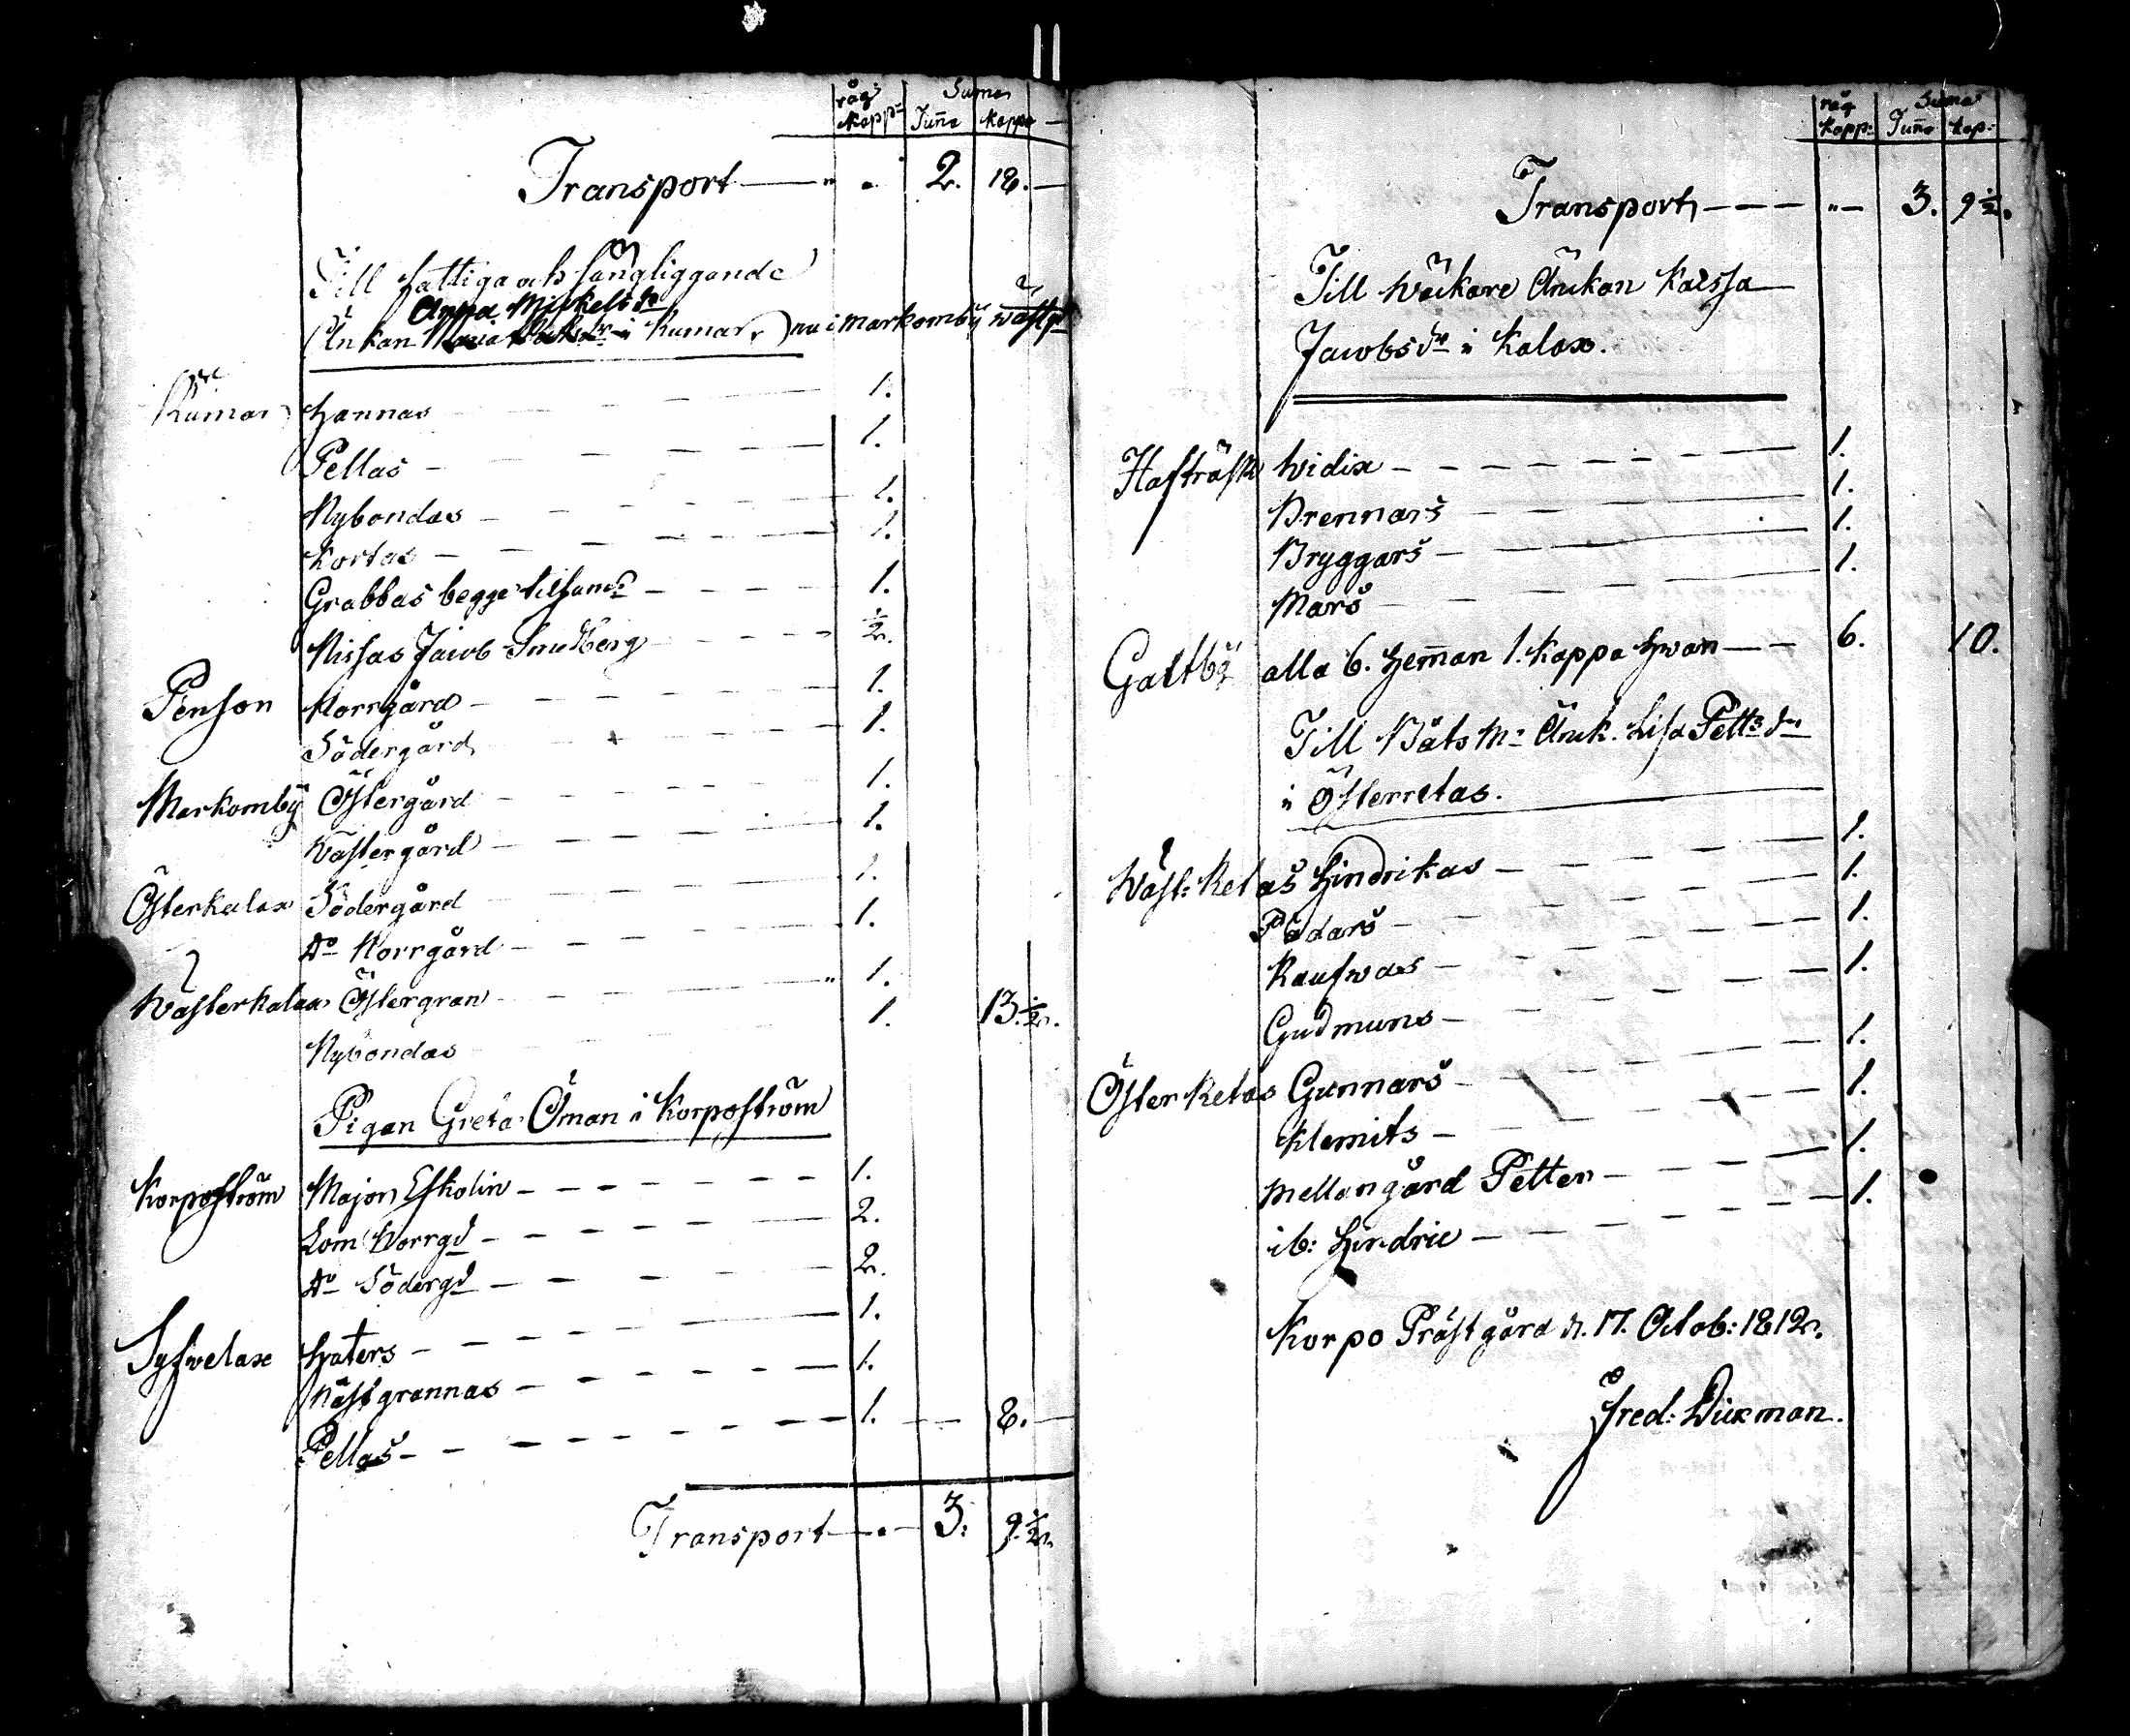 råg Suma
Kapp: Tuña Kappa
Transport 2. 18.
Till fattiga och sängliggande
Anna Mickelsdr
(Änkan i Kumar,) nu i Markomby Wästgd
Kumar Hannas 1.
Pellas 1.
Nybondas 1.
Kortas 1.
Grabbas begge tilsam: 1.
Nissas Jacob Smedberg ½.
Penson Norrgård 1.
Södergård 1.
Markomby Östergård 1.
Wästergård 1.
Österkalax Södergård 1.
Do Norrgård 1.
Wästerkalax Östergran 1.
Nybondas 1. 13.½.
Pigan Greta Öman i Korpoström
Korpoström Major Eskolin 1.
Lom Norrgd 2.
Do Södergd 2.
Syfwelax Haters 1.
Nästgrannas 1.
Pellas 1. 8.
Transport 3. 9.½.
råg Suma
Kapp: Tuña Kap:
Transport 3. 9½.
Till Wäckare Änkan Kaissa
Jacobsdr i Kalax.
Hafträsk Widix 1.
Brennars 1.
Bryggars 1.
Mars 1.
Galtby alla 6. Hem̄an 1. Kappa hwan 6. 10.
Till Båts M: Änk. Lisa Pettsdr
i Österretas.
Wäst: Retas Hindrikas 1.
Pädars 1.
Kaufwas 1.
Gudmuns 1.
Öster Retas Gunnars 1.
Klemits 1.
Mellangård Petter 1.
ib: Hindric 1.
Korpo Prästgård d. 17. Octob: 1812.
Fred: Dickman.